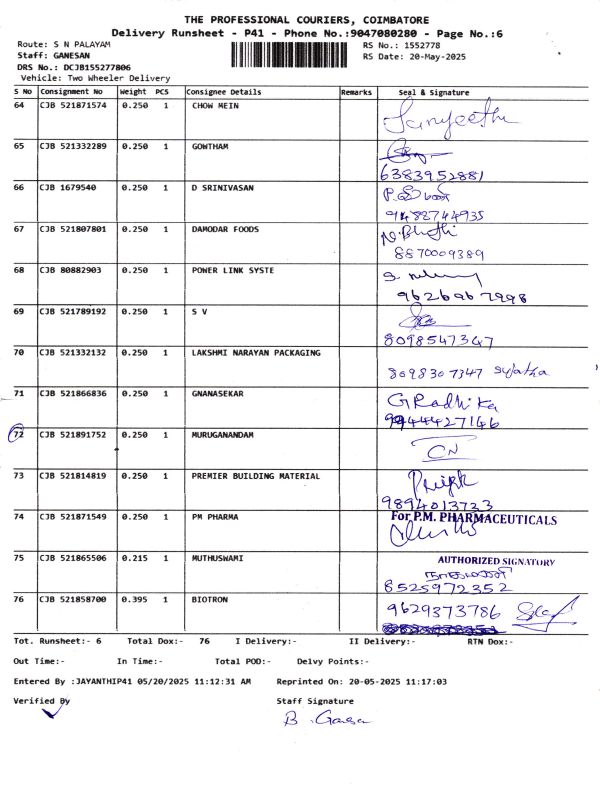 THE PROFESSIONAL COURIERS, COIMBATORE
Delivery Runsheet - P41 - Phone No.:9047080280 - Page No.:6
Route: S N PALAYAM
RS No.: 1552778
Staff: GANESAN
RS Date: 20-May-2025
DRS No.: DCJB155277806
Vehicle: Two Wheeler Delivery
S No Consignment No Weight PCS Consignee Details Remarks Seal & Signature
64 CJB 521871574 0.250 1 CHOW MEIN
65 CJB 521332289 0.250 1 GOWTHAM
6383952881
66 CJB 1679540 0.250 1 D SRINIVASAN
9488744935
67 CJB 521807801 0.250 1 DAMODAR FOODS
8870009389
68 CJB 80882903 0.250 1 POWER LINK SYSTE
9626967998
69 CJB 521789192 0.250 1 S V
8098547347
70 CJB 521332132 0.250 1 LAKSHMI NARAYAN PACKAGING
8098307347 Sujatha
71 CJB 521866836 0.250 1 GNANASEKAR
G Radhika
9944427146
72 CJB 521891752 0.250 1 MURUGANANDAM
CN
73 CJB 521814819 0.250 1 PREMIER BUILDING MATERIAL
9894013723
74 CJB 521871549 0.250 1 PM PHARMA
For P.M. PHARMACEUTICALS
75 CJB 521865506 0.215 1 MUTHUSWAMI
AUTHORIZED SIGNATORY
8525972352
76 CJB 521858700 0.395 1 BIOTRON
9629373786
Tot. Runsheet:- 6 Total Dox:- 76 I Delivery:- II Delivery:- RTN Dox:-
Out Time:- In Time:- Total POD:- Delvy Points:-
Entered By :JAYANTHIP41 05/20/2025 11:12:31 AM Reprinted On: 20-05-2025 11:17:03
Verified By
Staff Signature